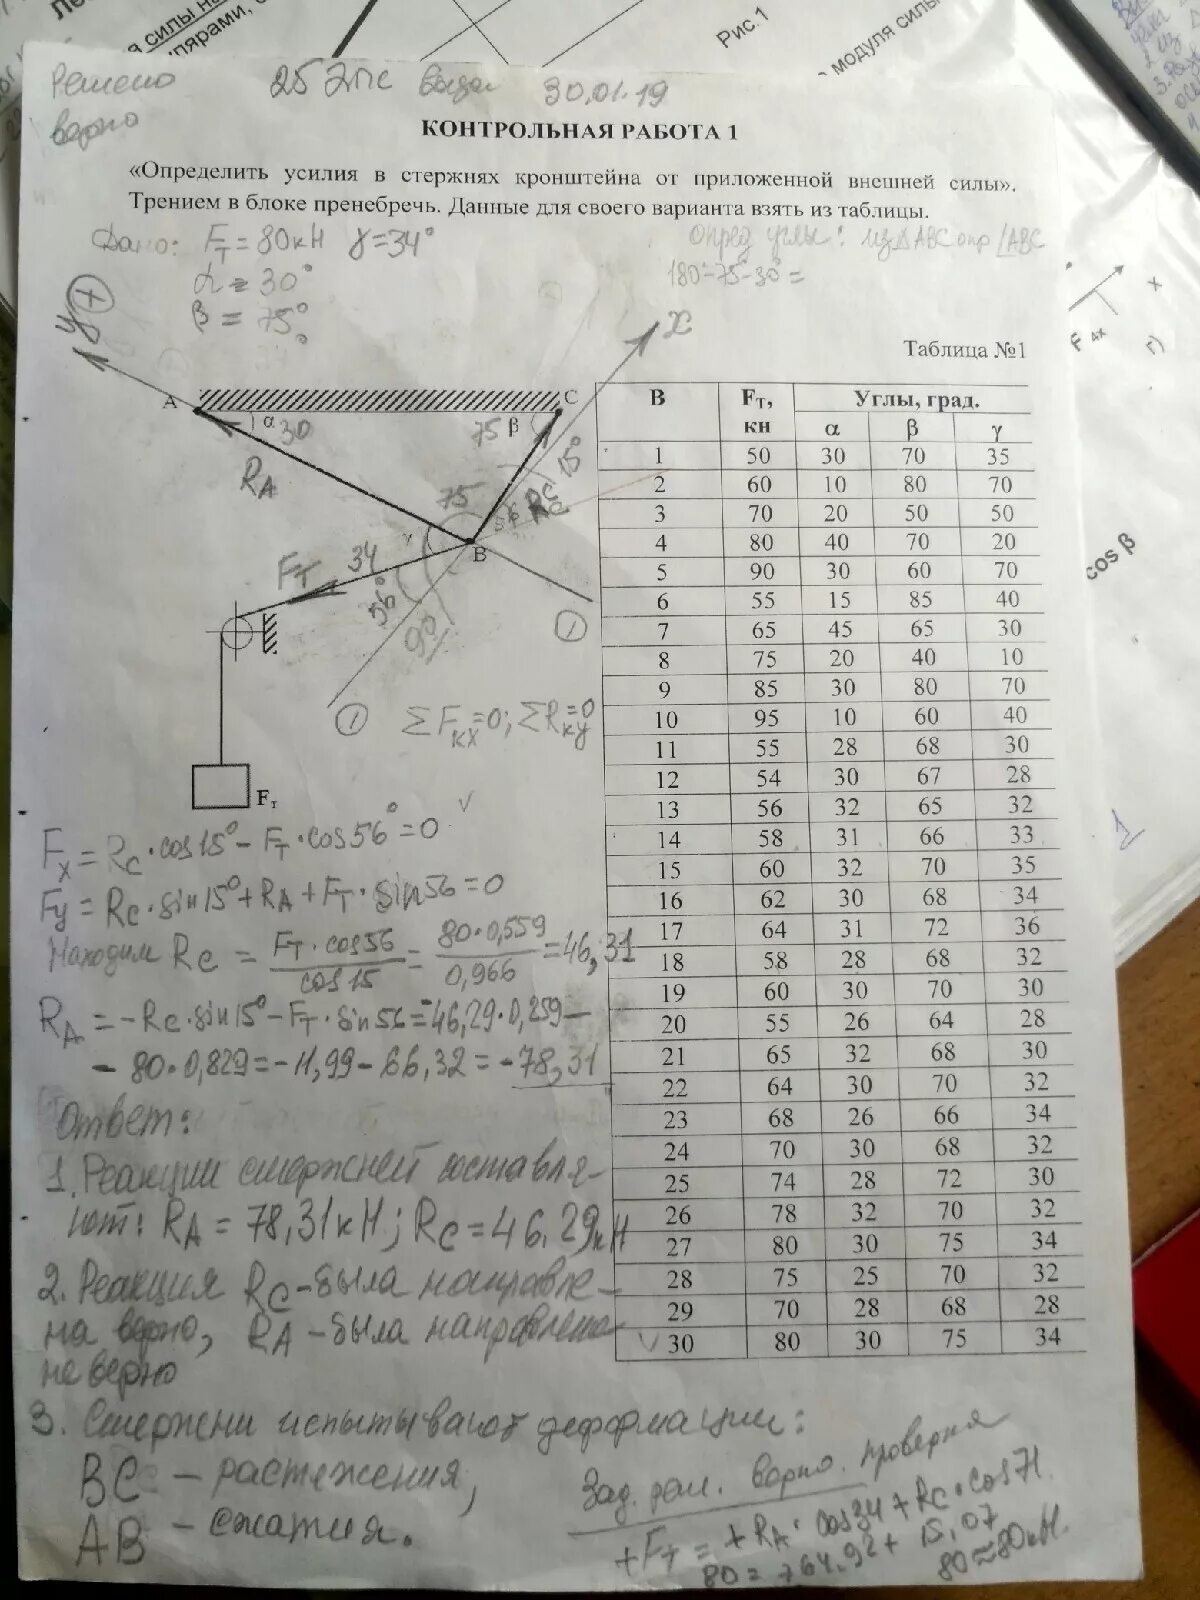 Рис.1
модуля силы
Решено 25 Эпс 30.01.19
верно
КОНТРОЛЬНАЯ РАБОТА 1
«Определить усилия в стержнях кронштейна от приложенной внешней силы».
Трением в блоке пренебречь. Данные для своего варианта взять из таблицы.
Дано: Fт = 80кН γ=34°
α = 30°
β = 75°
опред углы: из ΔABC опр ∠ABC
180-75-30° =
Таблица №1
y +
x
A
α 30
75 β
C
15°
RA
RC
75
γ
B
34
Fт
56°
90
1
1
Fт
ΣFкх=0; ΣRку=0
F 4x
x
г)
cos β
В Fт, кн Углы, град.
α β γ
1 50 30 70 35
2 60 10 80 70
3 70 20 50 50
4 80 40 70 20
5 90 30 60 70
6 55 15 85 40
7 65 45 65 30
8 75 20 40 10
9 85 30 80 70
10 95 10 60 40
11 55 28 68 30
12 54 30 67 28
13 56 32 65 32
14 58 31 66 33
15 60 32 70 35
16 62 30 68 34
17 64 31 72 36
18 58 28 68 32
19 60 30 70 30
20 55 26 64 28
21 65 32 68 30
22 64 30 70 32
23 68 26 66 34
24 70 30 68 32
25 74 28 72 30
26 78 32 70 32
27 80 30 75 34
28 75 25 70 32
29 70 28 68 28
30 80 30 75 34
Fx = Rc · cos15° - Fт · cos56° = 0
Fy = Rc · sin15° + RA + Fт · sin56 = 0
Находим Rc = Fт · cos56 / cos15 = 80 · 0,559 / 0,966 = 46,31
RA = -Rc · sin15° - Fт · sin56 = 46,29 · 0,259 -
- 80 · 0,829 = -11,99 - 66,32 = -78,31
Ответ:
1. Реакции стержней составля-
ют: RA = 78,31кН; Rc = 46,29кН
2. Реакция Rc - была направле-
на верно, RA - была направлена
не верно
3. Стержни испытывают деформации:
BC - растяжения,
AB - сжатия.
Зад. верно. проверка
+Fт = +RA · cos34 + Rc · cos71
80 = 764.92 + 15,07
80 ≈ 80кН.